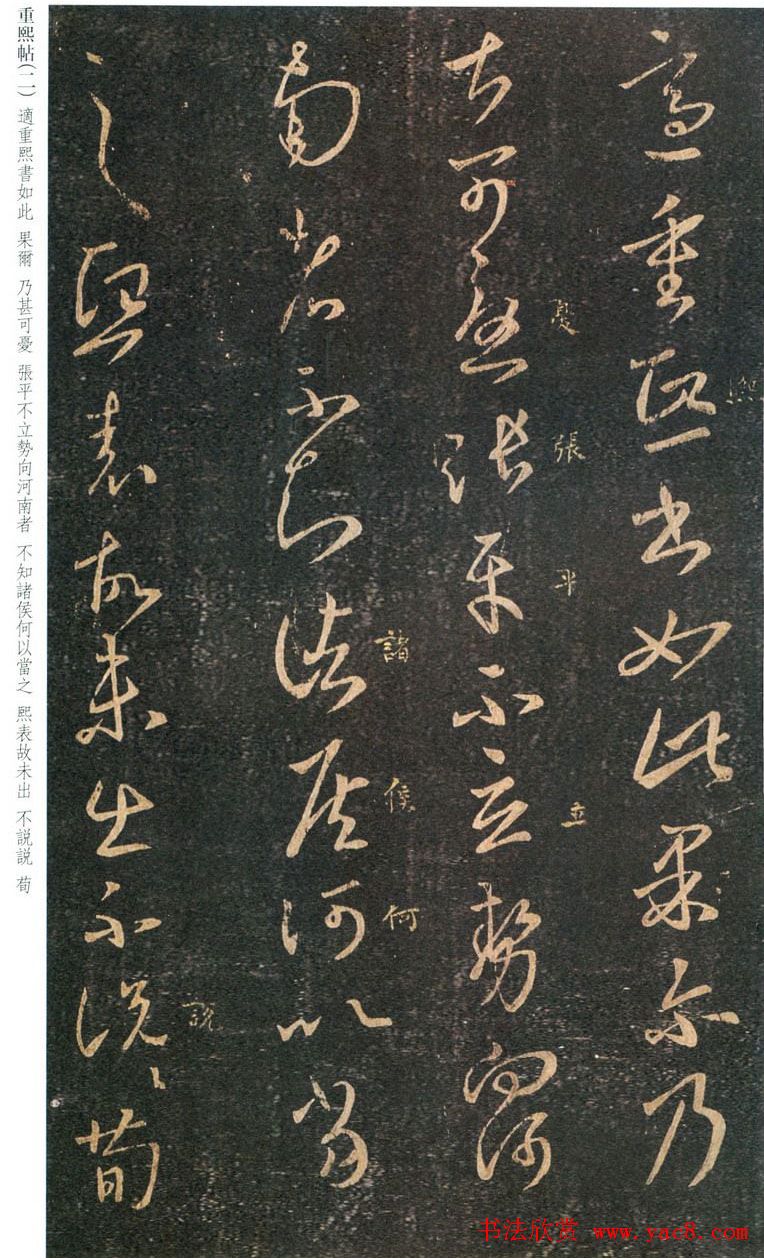 適重熙書如此果爾乃
熙
甚可憂張平不立勢向河
憂
張
平
立
南者不知諸侯何以當
諸
侯
何
之熙表故未出不説〻荀
説
重熙帖(二) 適重熙書如此 果爾 乃甚可憂 張平不立勢向河南者 不知諸侯何以當之 熙表故未出 不説説 荀
书法欣赏 www.yac8.com